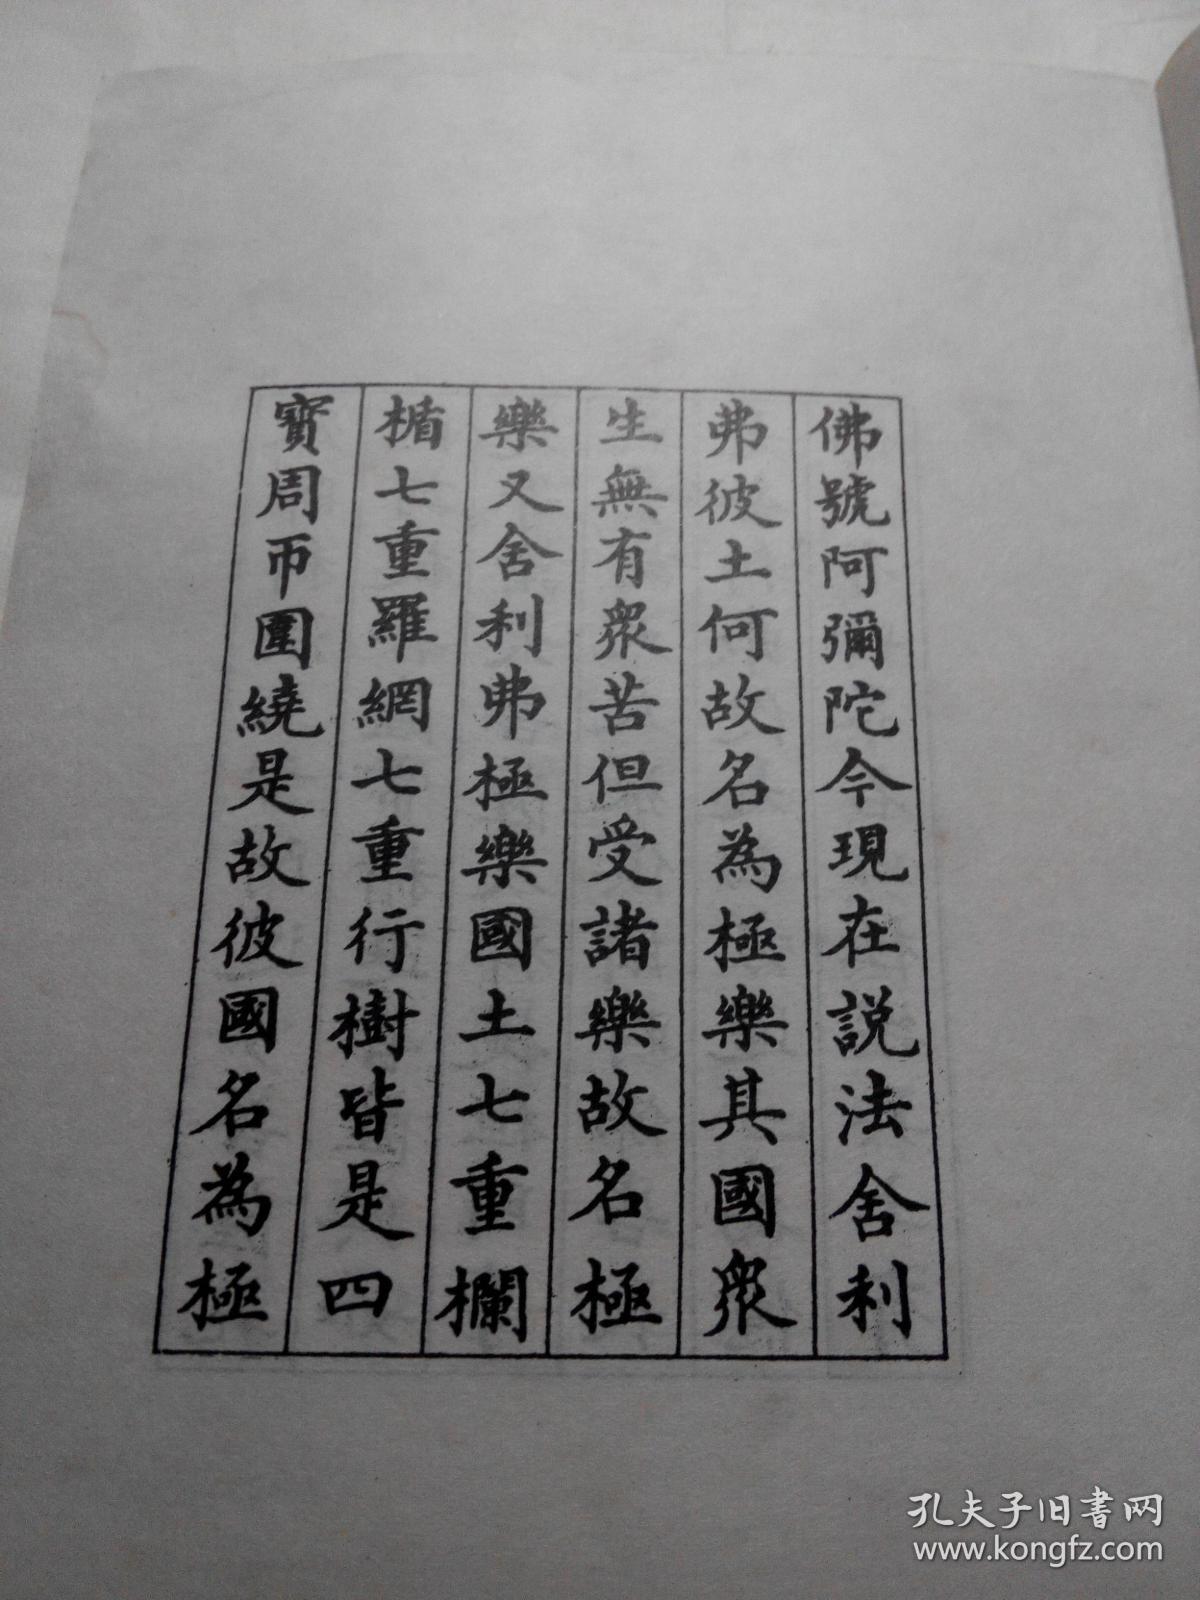 佛號阿彌陀今現在説法舍利
弗彼土何故名為極樂其國衆
生無有衆苦但受諸樂故名極
樂又舍利弗極樂國土七重欄
楯七重羅網七重行樹皆是四
寳周帀圍繞是故彼國名為極
孔夫子旧书网
www.kongfz.com